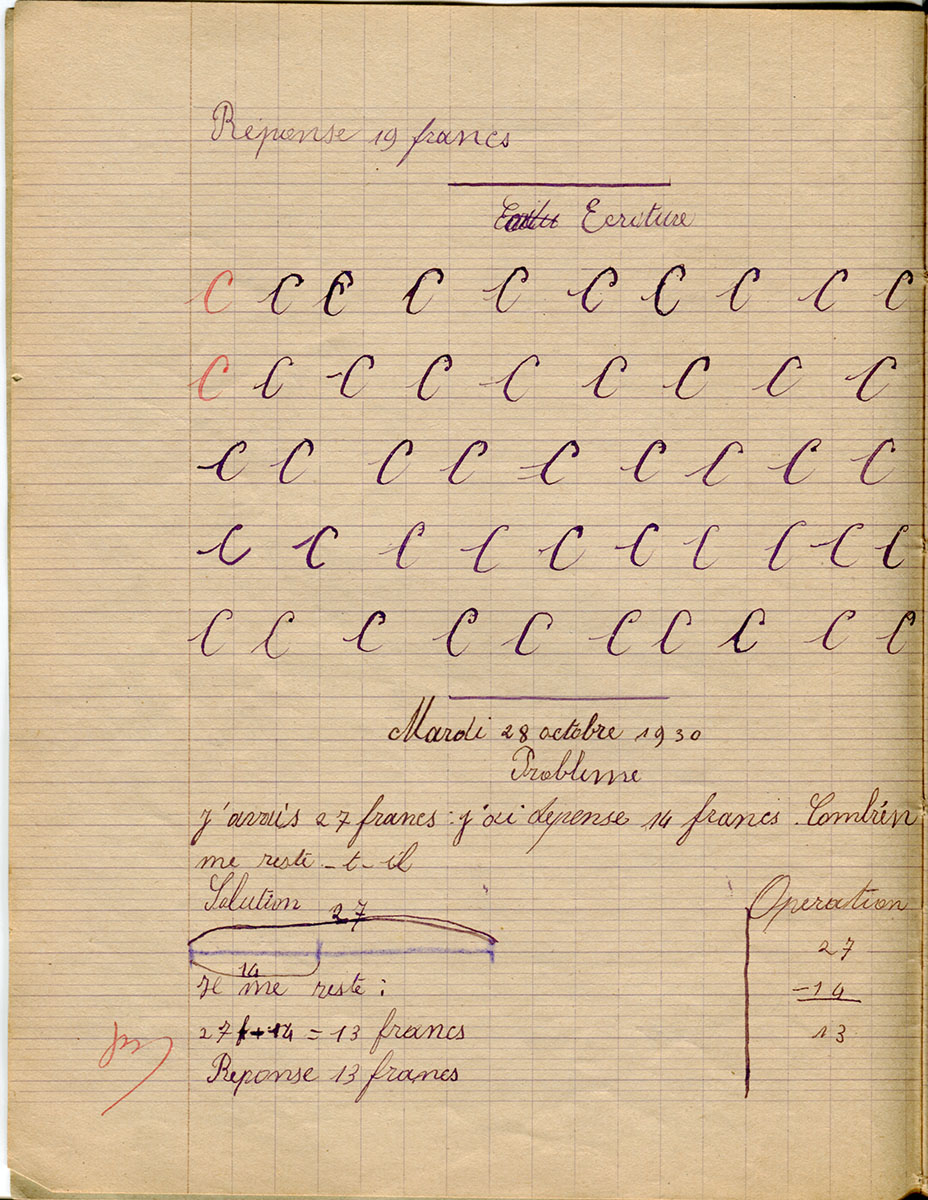 Réponse 19 francs
Ecriture
C C C C C C C C C C
C C C C C C C C C
C C C C C C C C C
C C C C C C C C C C
C C C C C C C C C C
Mardi 28 octobre 1930
Probleme
J'avais 27 francs : j'ai depense 14 francs. Combien
me reste-t-il
Solution
27
14
Il me reste :
27f - 14 = 13 francs
Reponse 13 francs
Operation
27
-14
13